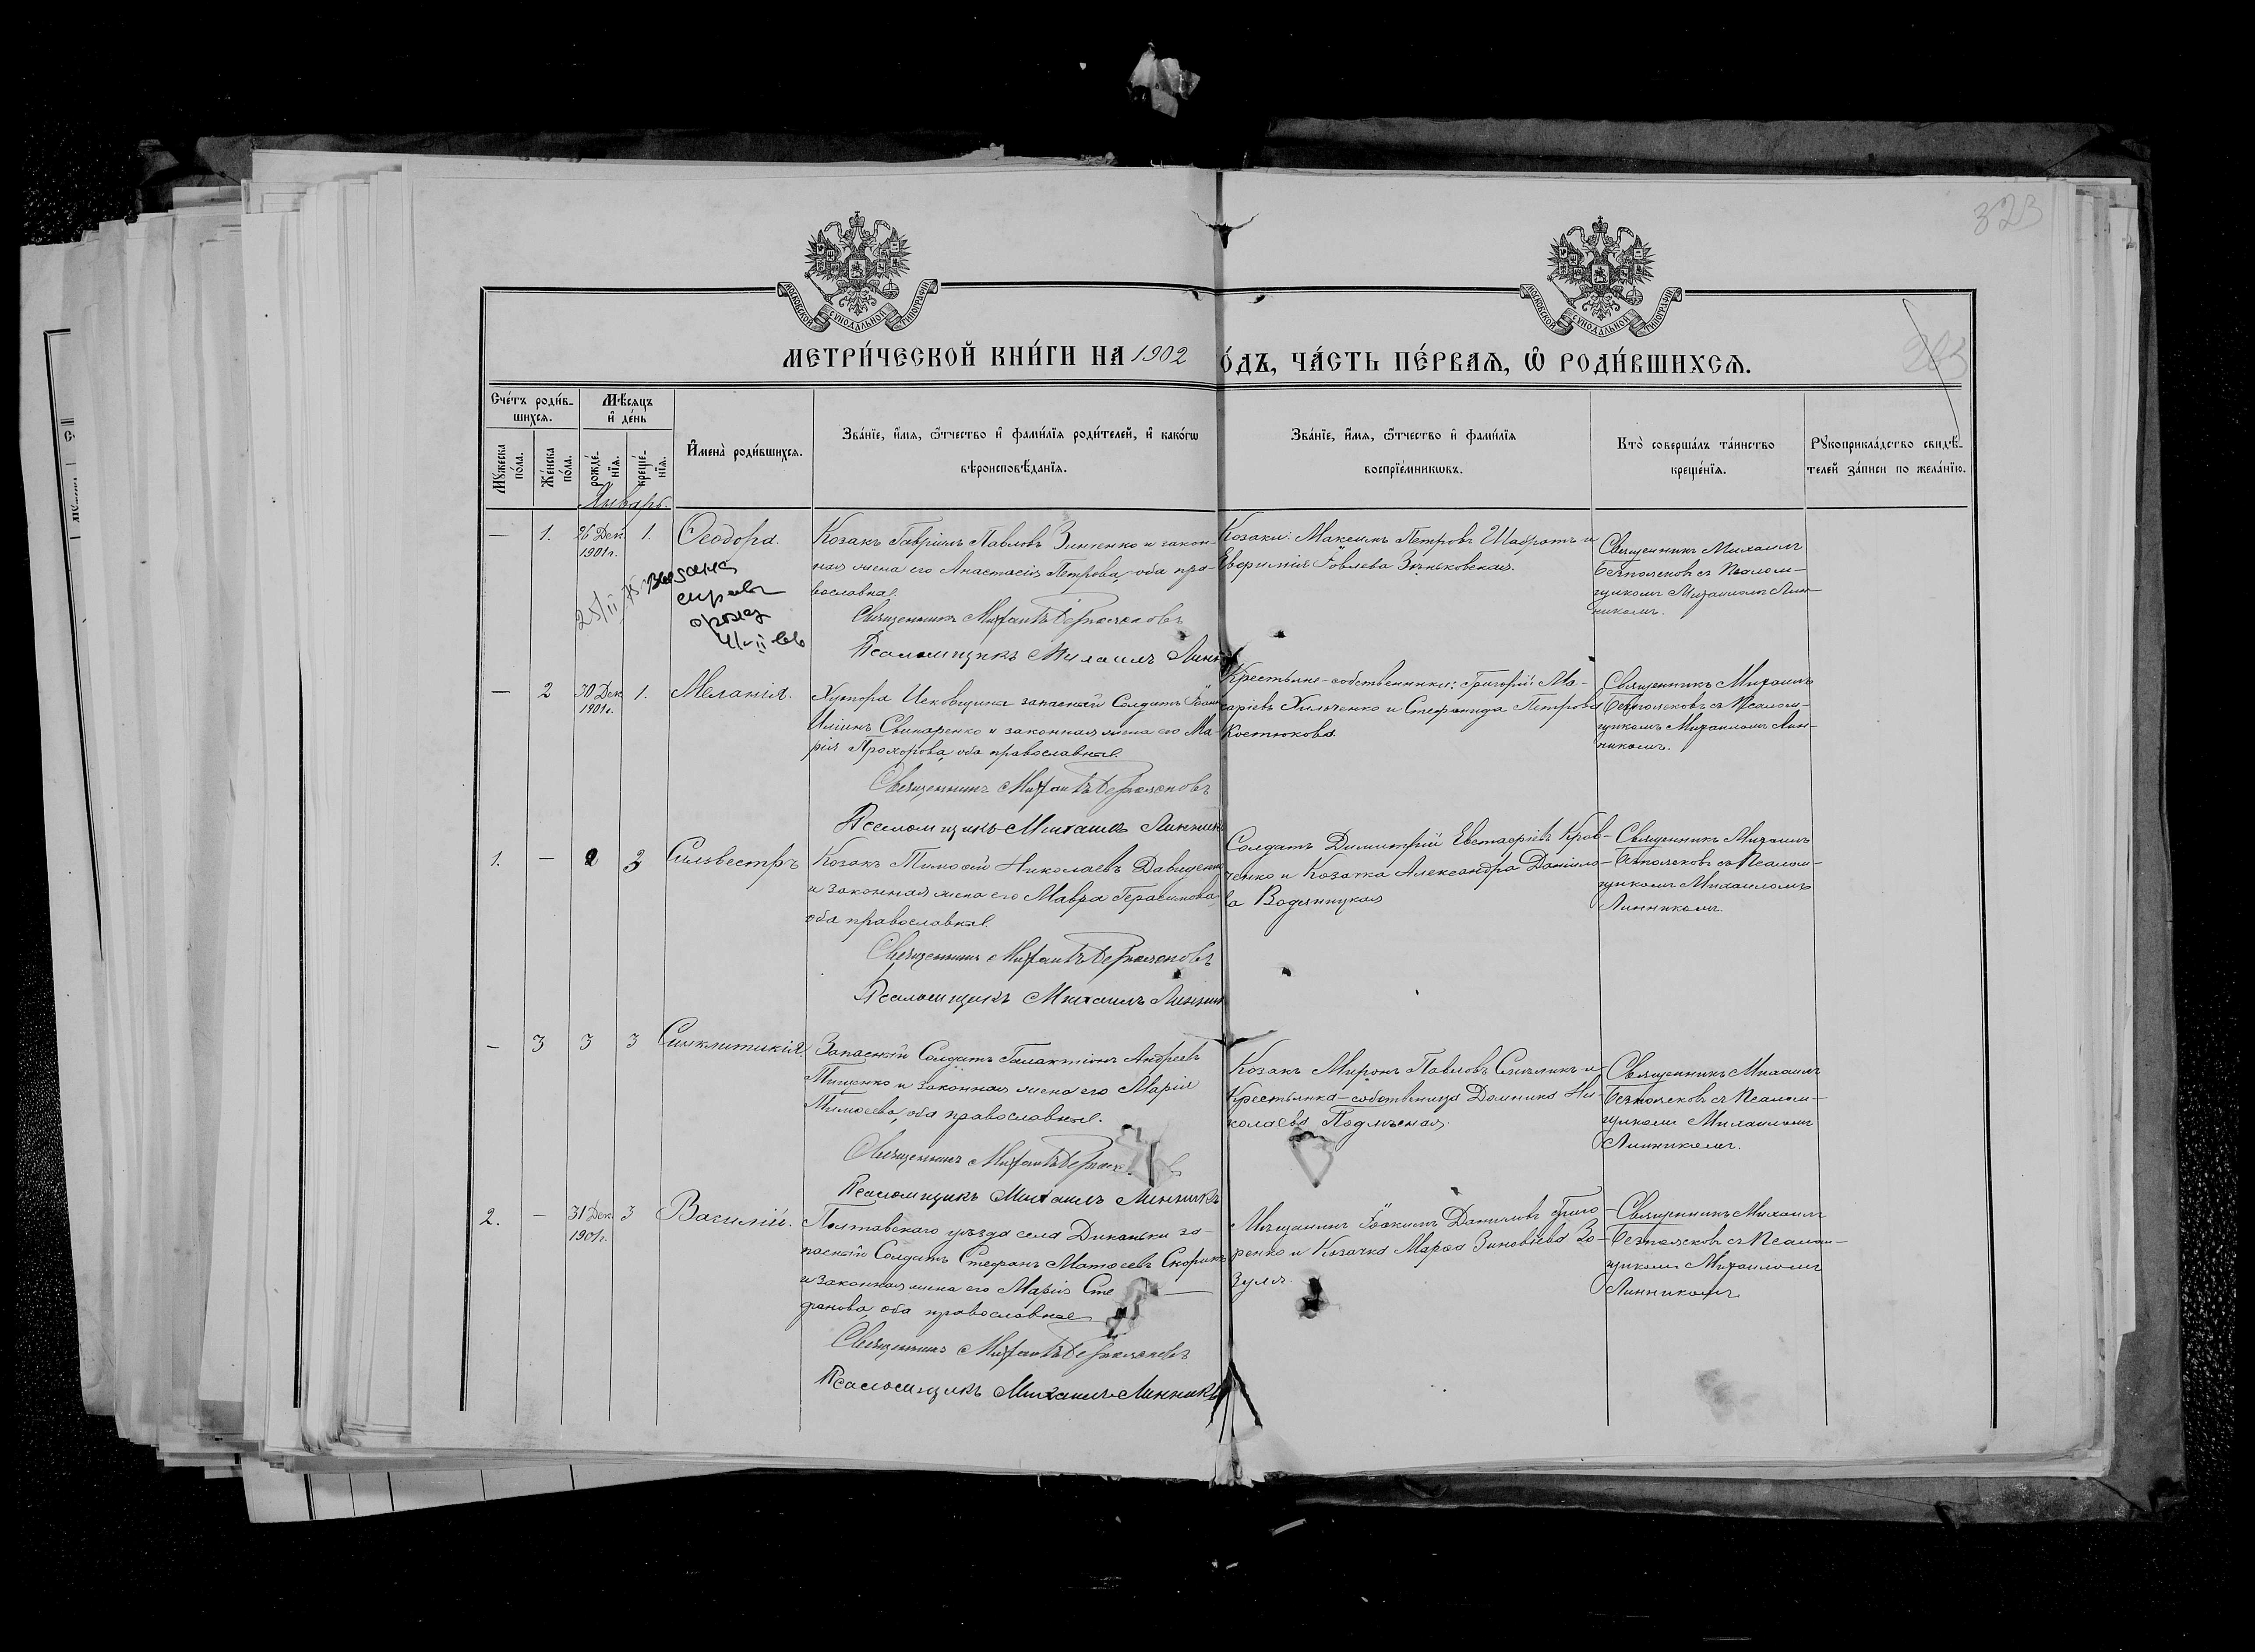 323
МОСКОВСКОЙ СУНОДАЛЬНОЙ ТИПОГРАФІИ
МОСКОВСКОЙ СУНОДАЛЬНОЙ ТИПОГРАФІИ
МЕТРИ́ЧЕСКОЙ КНИ́ГИ НА 1902 О́ДЪ, ЧА́СТЬ ПЕ́РВАѦ, Ѡ РОДИ́ВШИХСѦ.
Сче́тъ роди́в-
шихся.
Мѣ́сяцъ
и де́нь
Мꙋ́жеска
по́ла.
Же́нска
по́ла.
рожде́-
нїя.
креще́-
нїя.
Имена̀ роди́вшихся.
Зва́нїе, и́мя, ѻ́тчество и фами́лїя роди́телей, и како́гѡ
вѣроисповѣ́данїя.
Зва́нїе, и́мя, ѻ́тчество и фами́лїя
воспрїе́мникѡвъ.
Кто̀ соверша́лъ та́инство
креще́нїя.
Рꙋкоприкла́дство свидѣ́-
телей за́писи по жела́нїю.
Январь.
— 1. 26 Дек. 1901 г. 1. Ѳеодора.
Козакъ Гавріилъ Павловъ Зинченко и закон-
ная жена его Анастасія Петрова, оба пра-
вославные.
Священникъ Михаилъ Безпалековъ
Псаломщикъ Михаилъ Линникъ
Козаки: Максимъ Петровъ Шабратъ и
Евфимія Іовлева Зеньковская.
Священникъ Михаилъ
Безпалековъ съ Псалом-
щикомъ Михаиломъ Лин-
никомъ.
— 2 30 Дек. 1901 г. 1. Меланія.
Хутора Исковщина запасный Солдатъ Іоаннъ
Иліинъ Свинаренко и законная жена его Ма-
рія Прохорова, оба православные.
Священникъ Михаилъ Безпалековъ
Псаломщикъ Михаилъ Линникъ
Крестьяне-собственники: Григорій Ма-
каріевъ Хильченко и Стефанида Петрова
Костюкова.
Священникъ Михаилъ
Безпалековъ съ Псалом-
щикомъ Михаиломъ Лин-
никомъ.
1. — 2 3 Сильвестръ
Козакъ Тимоѳей Николаевъ Давиденко
и законная жена его Мавра Герасимова,
оба православные.
Священникъ Михаилъ Безпалековъ
Псаломщикъ Михаилъ Линникъ
Солдатъ Димитрій Евстафіевъ Крав-
ченко и Козачка Александра Данило-
ва Водяницкая
Священникъ Михаилъ
Безпалековъ съ Псалом-
щикомъ Михаиломъ
Линникомъ.
— 3 3 3 Синклитикія.
Запасный Солдатъ Галактіонъ Андреевъ
Тищенко и законная жена его Марія
Тимоѳеева, оба православные.
Священникъ Михаилъ
Псаломщикъ Михаилъ Линникъ
Козакъ Миронъ Павловъ и
Крестьянка-собственица Домника Ни-
колаева
Священникъ Михаилъ
Безпалековъ съ Псалом-
щикомъ Михаиломъ
Линникомъ.
2. — 31 Дек. 1901 г. 3 Василій.
Полтавскаго уѣзда села Диканьки за-
пасный Солдатъ Стефанъ Матѳеевъ Скорикъ
и законная жена его Марія Сте
фанова, оба православные
Священникъ Михаилъ Безпалековъ
Псаломщикъ Михаилъ Линникъ
Мещанинъ Іоакимъ Даниловъ Григо-
ренко и Козачка Марѳа Зиновіева Зо-
зуля.
Священникъ Михаилъ
Безпалековъ съ Псалом-
щикомъ Михаиломъ
Линникомъ.